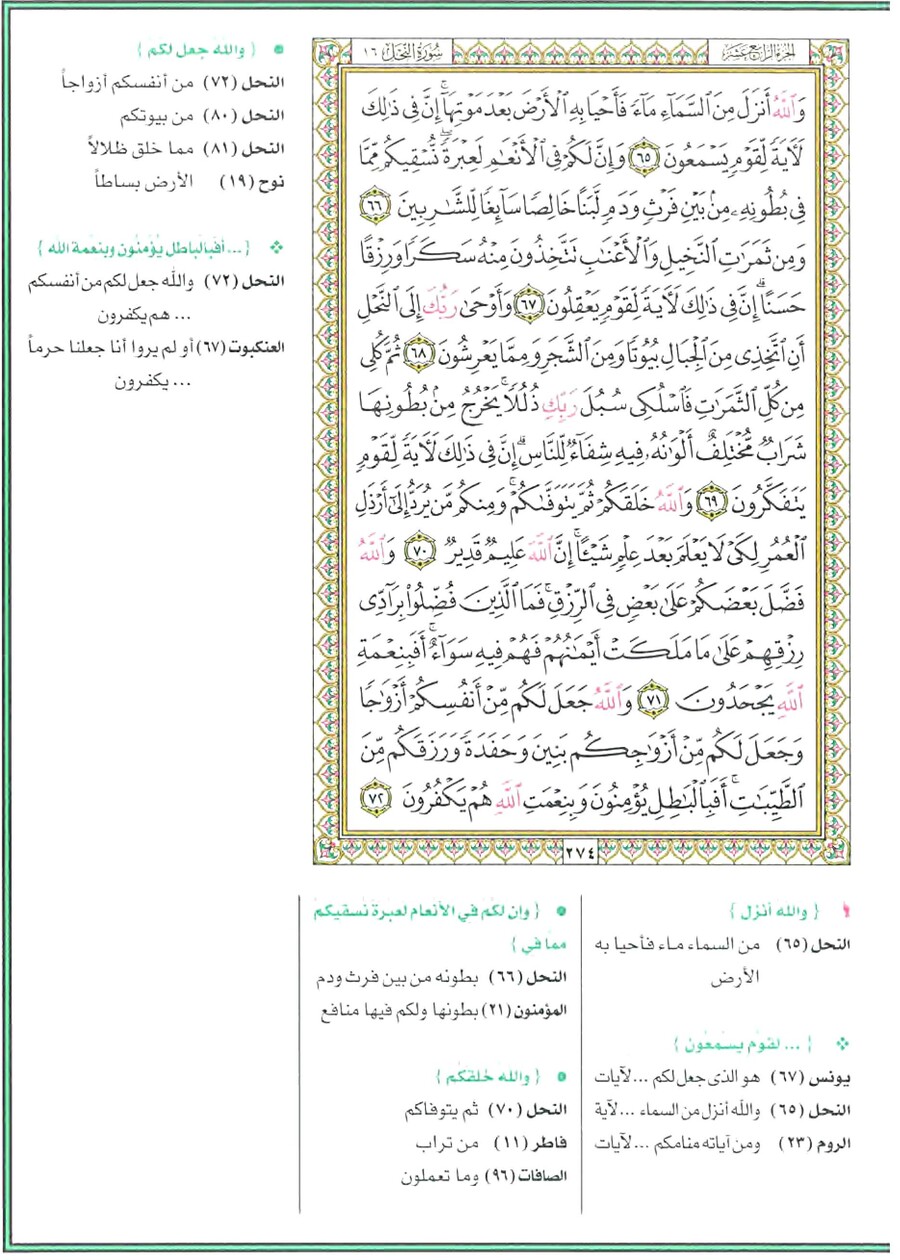 الجزء الرابع عشر
سورة النحل ١٦
وَٱللَّهُ أَنزَلَ مِنَ ٱلسَّمَآءِ مَآءً فَأَحْيَا بِهِ ٱلْأَرْضَ بَعْدَ مَوْتِهَآ ۚ إِنَّ فِى ذَٰلِكَ
لَءَايَةً لِّقَوْمٍ يَسْمَعُونَ ٦٥ وَإِنَّ لَكُمْ فِى ٱلْأَنْعَٰمِ لَعِبْرَةً ۖ نُّسْقِيكُم مِّمَّا
فِى بُطُونِهِۦ مِنۢ بَيْنِ فَرْثٍ وَدَمٍ لَّبَنًا خَالِصًا سَآئِغًا لِّلشَّٰرِبِينَ ٦٦
وَمِن ثَمَرَٰتِ ٱلنَّخِيلِ وَٱلْأَعْنَٰبِ تَتَّخِذُونَ مِنْهُ سَكَرًا وَرِزْقًا
حَسَنًا ۗ إِنَّ فِى ذَٰلِكَ لَءَايَةً لِّقَوْمٍ يَعْقِلُونَ ٦٧ وَأَوْحَىٰ رَبُّكَ إِلَى ٱلنَّحْلِ
أَنِ ٱتَّخِذِى مِنَ ٱلْجِبَالِ بُيُوتًا وَمِنَ ٱلشَّجَرِ وَمِمَّا يَعْرِشُونَ ٦٨ ثُمَّ كُلِى
مِن كُلِّ ٱلثَّمَرَٰتِ فَٱسْلُكِى سُبُلَ رَبِّكِ ذُلُلًا ۚ يَخْرُجُ مِنۢ بُطُونِهَا
شَرَابٌ مُّخْتَلِفٌ أَلْوَٰنُهُۥ فِيهِ شِفَآءٌ لِّلنَّاسِ ۗ إِنَّ فِى ذَٰلِكَ لَءَايَةً لِّقَوْمٍ
يَتَفَكَّرُونَ ٦٩ وَٱللَّهُ خَلَقَكُمْ ثُمَّ يَتَوَفَّىٰكُمْ ۚ وَمِنكُم مَّن يُرَدُّ إِلَىٰٓ أَرْذَلِ
ٱلْعُمُرِ لِكَىْ لَا يَعْلَمَ بَعْدَ عِلْمٍ شَيْـًٔا ۚ إِنَّ ٱللَّهَ عَلِيمٌ قَدِيرٌ ٧٠ وَٱللَّهُ
فَضَّلَ بَعْضَكُمْ عَلَىٰ بَعْضٍ فِى ٱلرِّزْقِ ۚ فَمَا ٱلَّذِينَ فُضِّلُوا۟ بِرَآدِّى
رِزْقِهِمْ عَلَىٰ مَا مَلَكَتْ أَيْمَٰنُهُمْ فَهُمْ فِيهِ سَوَآءٌ ۚ أَفَبِنِعْمَةِ
ٱللَّهِ يَجْحَدُونَ ٧١ وَٱللَّهُ جَعَلَ لَكُم مِّنْ أَنفُسِكُمْ أَزْوَٰجًا
وَجَعَلَ لَكُم مِّنْ أَزْوَٰجِكُم بَنِينَ وَحَفَدَةً وَرَزَقَكُم مِّنَ
ٱلطَّيِّبَٰتِ ۚ أَفَبِٱلْبَٰطِلِ يُؤْمِنُونَ وَبِنِعْمَتِ ٱللَّهِ هُمْ يَكْفُرُونَ ٧٢
٢٧٤
{ والله أنزل }
النحل (٦٥) من السماء ماء فأحيا به
الأرض
{ ... لقوم يسمعون }
يونس (٦٧) هو الذى جعل لكم ... لآيات
النحل (٦٥) والله أنزل من السماء ... لآية
الروم (٢٣) ومن آياته منامكم ... لآيات
{ وإن لكم في الأنعام لعبرة نسقيكم
مما في }
النحل (٦٦) بطونه من بين فرث ودم
المؤمنون (٢١) بطونها ولكم فيها منافع
{ والله خلقكم }
النحل (٧٠) ثم يتوفاكم
فاطر (١١) من تراب
الصافات (٩٦) وما تعملون
{ والله جعل لكم }
النحل (٧٢) من أنفسكم أزواجاً
النحل (٨٠) من بيوتكم
النحل (٨١) مما خلق ظلالاً
نوح (١٩) الأرض بساطاً
{ ... أفبالباطل يؤمنون وبنعمة الله }
النحل (٧٢) والله جعل لكم من أنفسكم
... هم يكفرون
العنكبوت (٦٧) أو لم يروا أنا جعلنا حرماً
... يكفرون